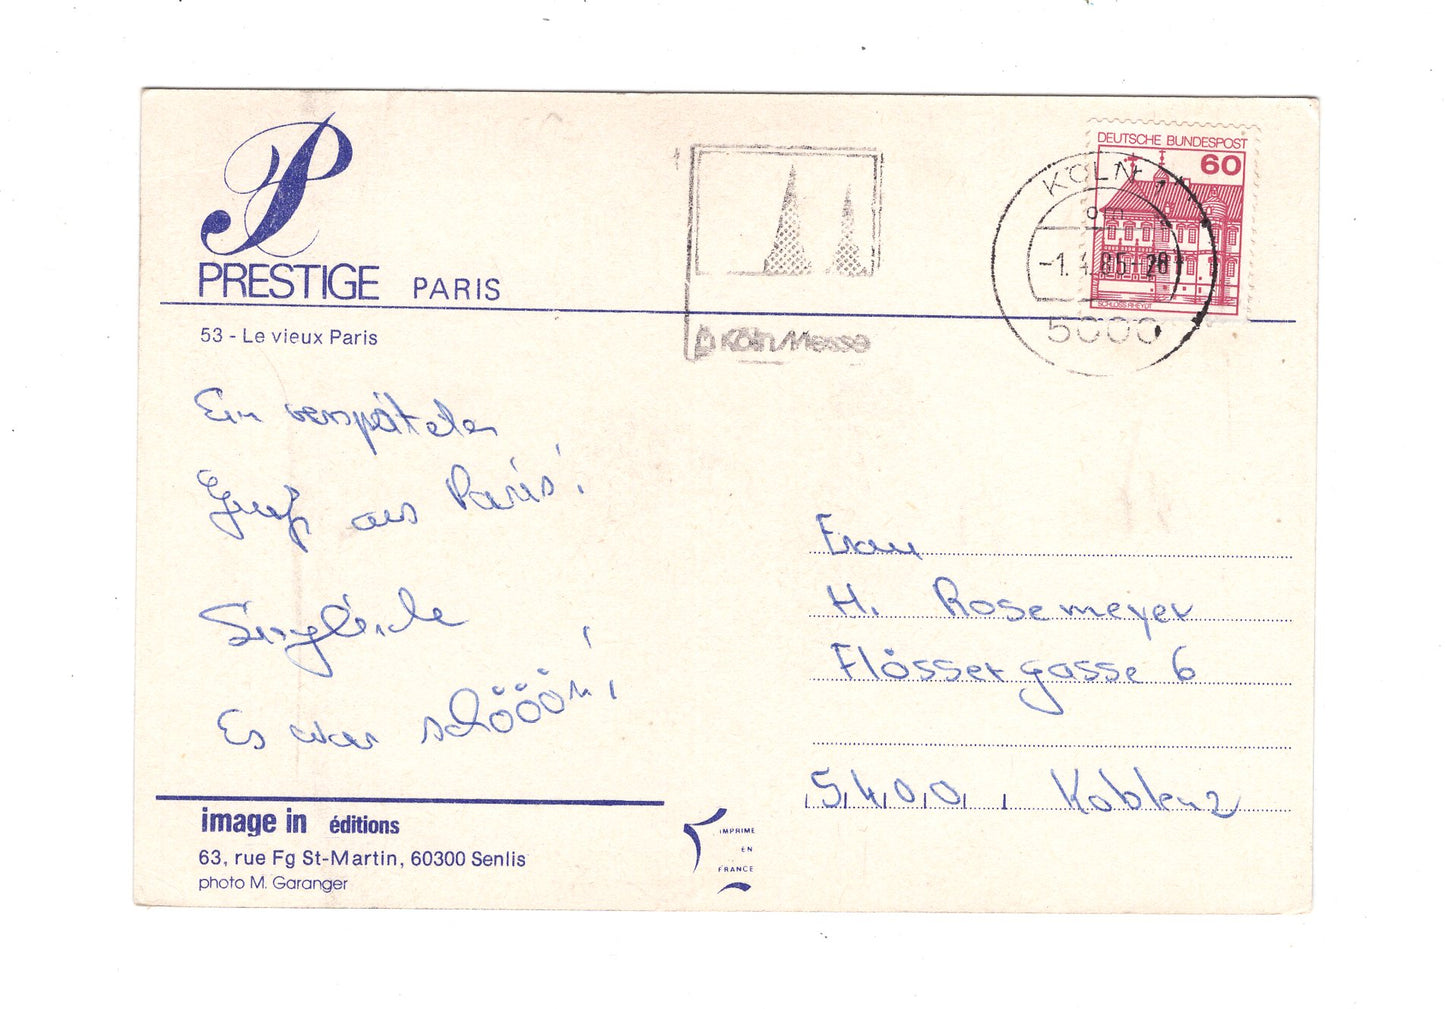 PRESTIGE PARIS
53 - Le vieux Paris
Ein verspäteter
Gruß aus Paris!
Es war schööön!
image in éditions
63, rue Fg St-Martin, 60300 Senlis
photo M. Garanger
IMPRIME
EN
FRANCE
KölnMesse
DEUTSCHE BUNDESPOST
60
SCHLOSS RHEYDT
KÖLN
-1.4.85-
5000
Frau
H. Rosemeyer
Flössergasse 6
5400 Koblenz